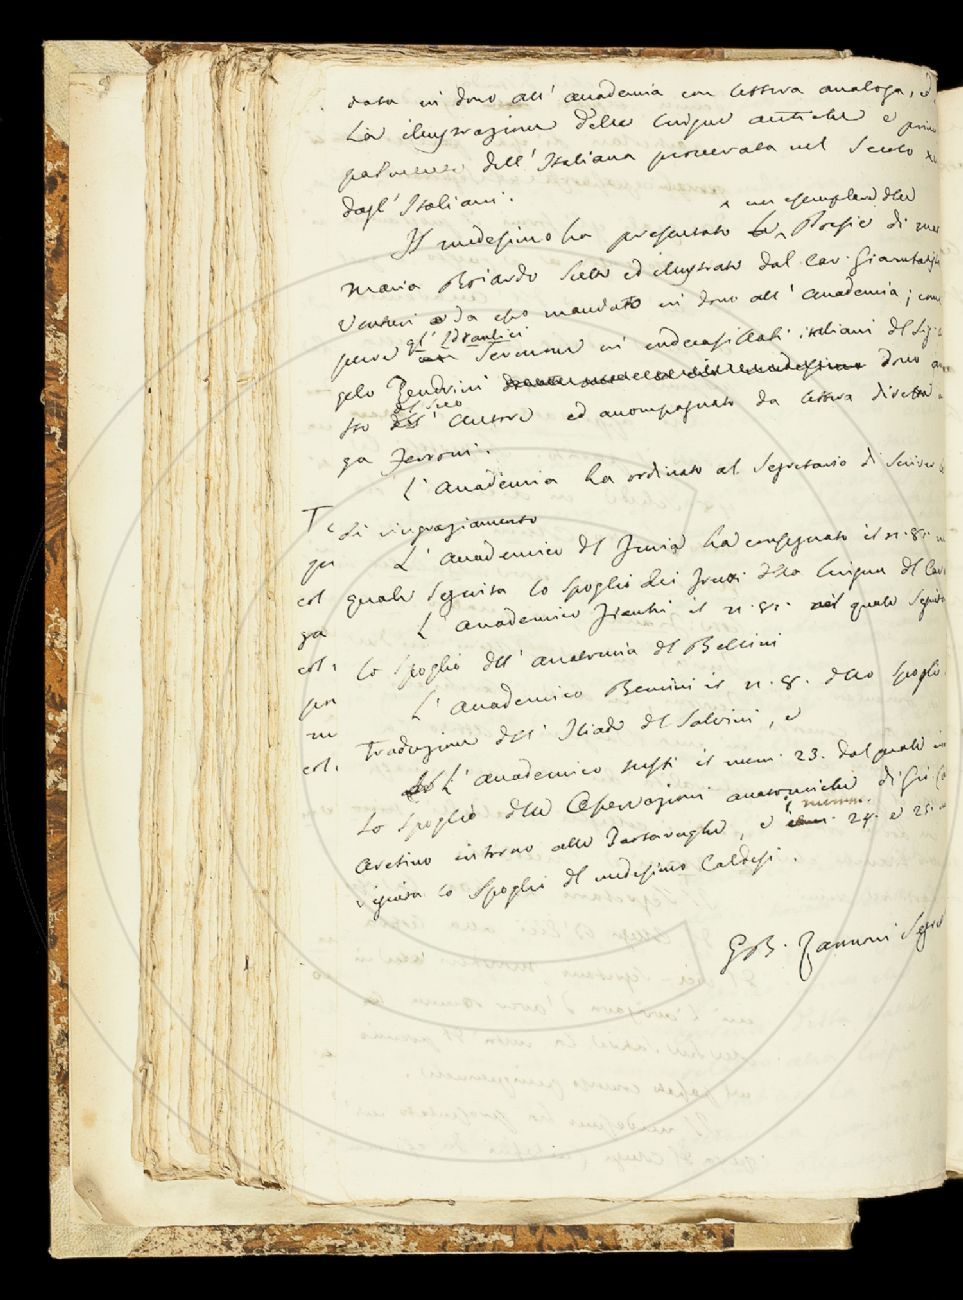 data in dono all' Accademia con lettera analoga, ed
La illustrazione delle lingue antiche e prin
palmente dell' Italiana procurata nel Secolo
dagl' Italiani.
un esemplare delle
Il medesimo ha presentato le Poesie di
Maria Boiardo scelte ed illustrate dal Cav. Giambattista
Venturi e da esso mandato in dono all' Accademia; come
gl' Idraulici
pure Sermone in endecasillabi italiani del Sig.
gelo Zendrini dono
del suo
sto dell' Autore ed accompagnato da lettera diretta a
ga Ferroni.
L'Accademia ha ordinato al Segretario di scrivere
di ringraziamento
L'Accademico del Furia ha consegnato il n. 8.
quale seguita lo spoglio dei della Lingua del
L'Accademico Fiacchi il n. 81. nel quale seguita
lo spoglio dell' anatomia del Bellini
L'Accademico Bencini il n. 8. dello spoglio
Traduzione dell' Iliade del Salvini, e
L'Accademico il num. 23. dal quale
Lo spoglio delle Osservazioni anatomiche di Gio.
i numm.
Aretino intorno alle Tartarughe, e 24. e 25.
seguita lo spoglio del medesimo Caldesi.
G. B. Zannoni Segr